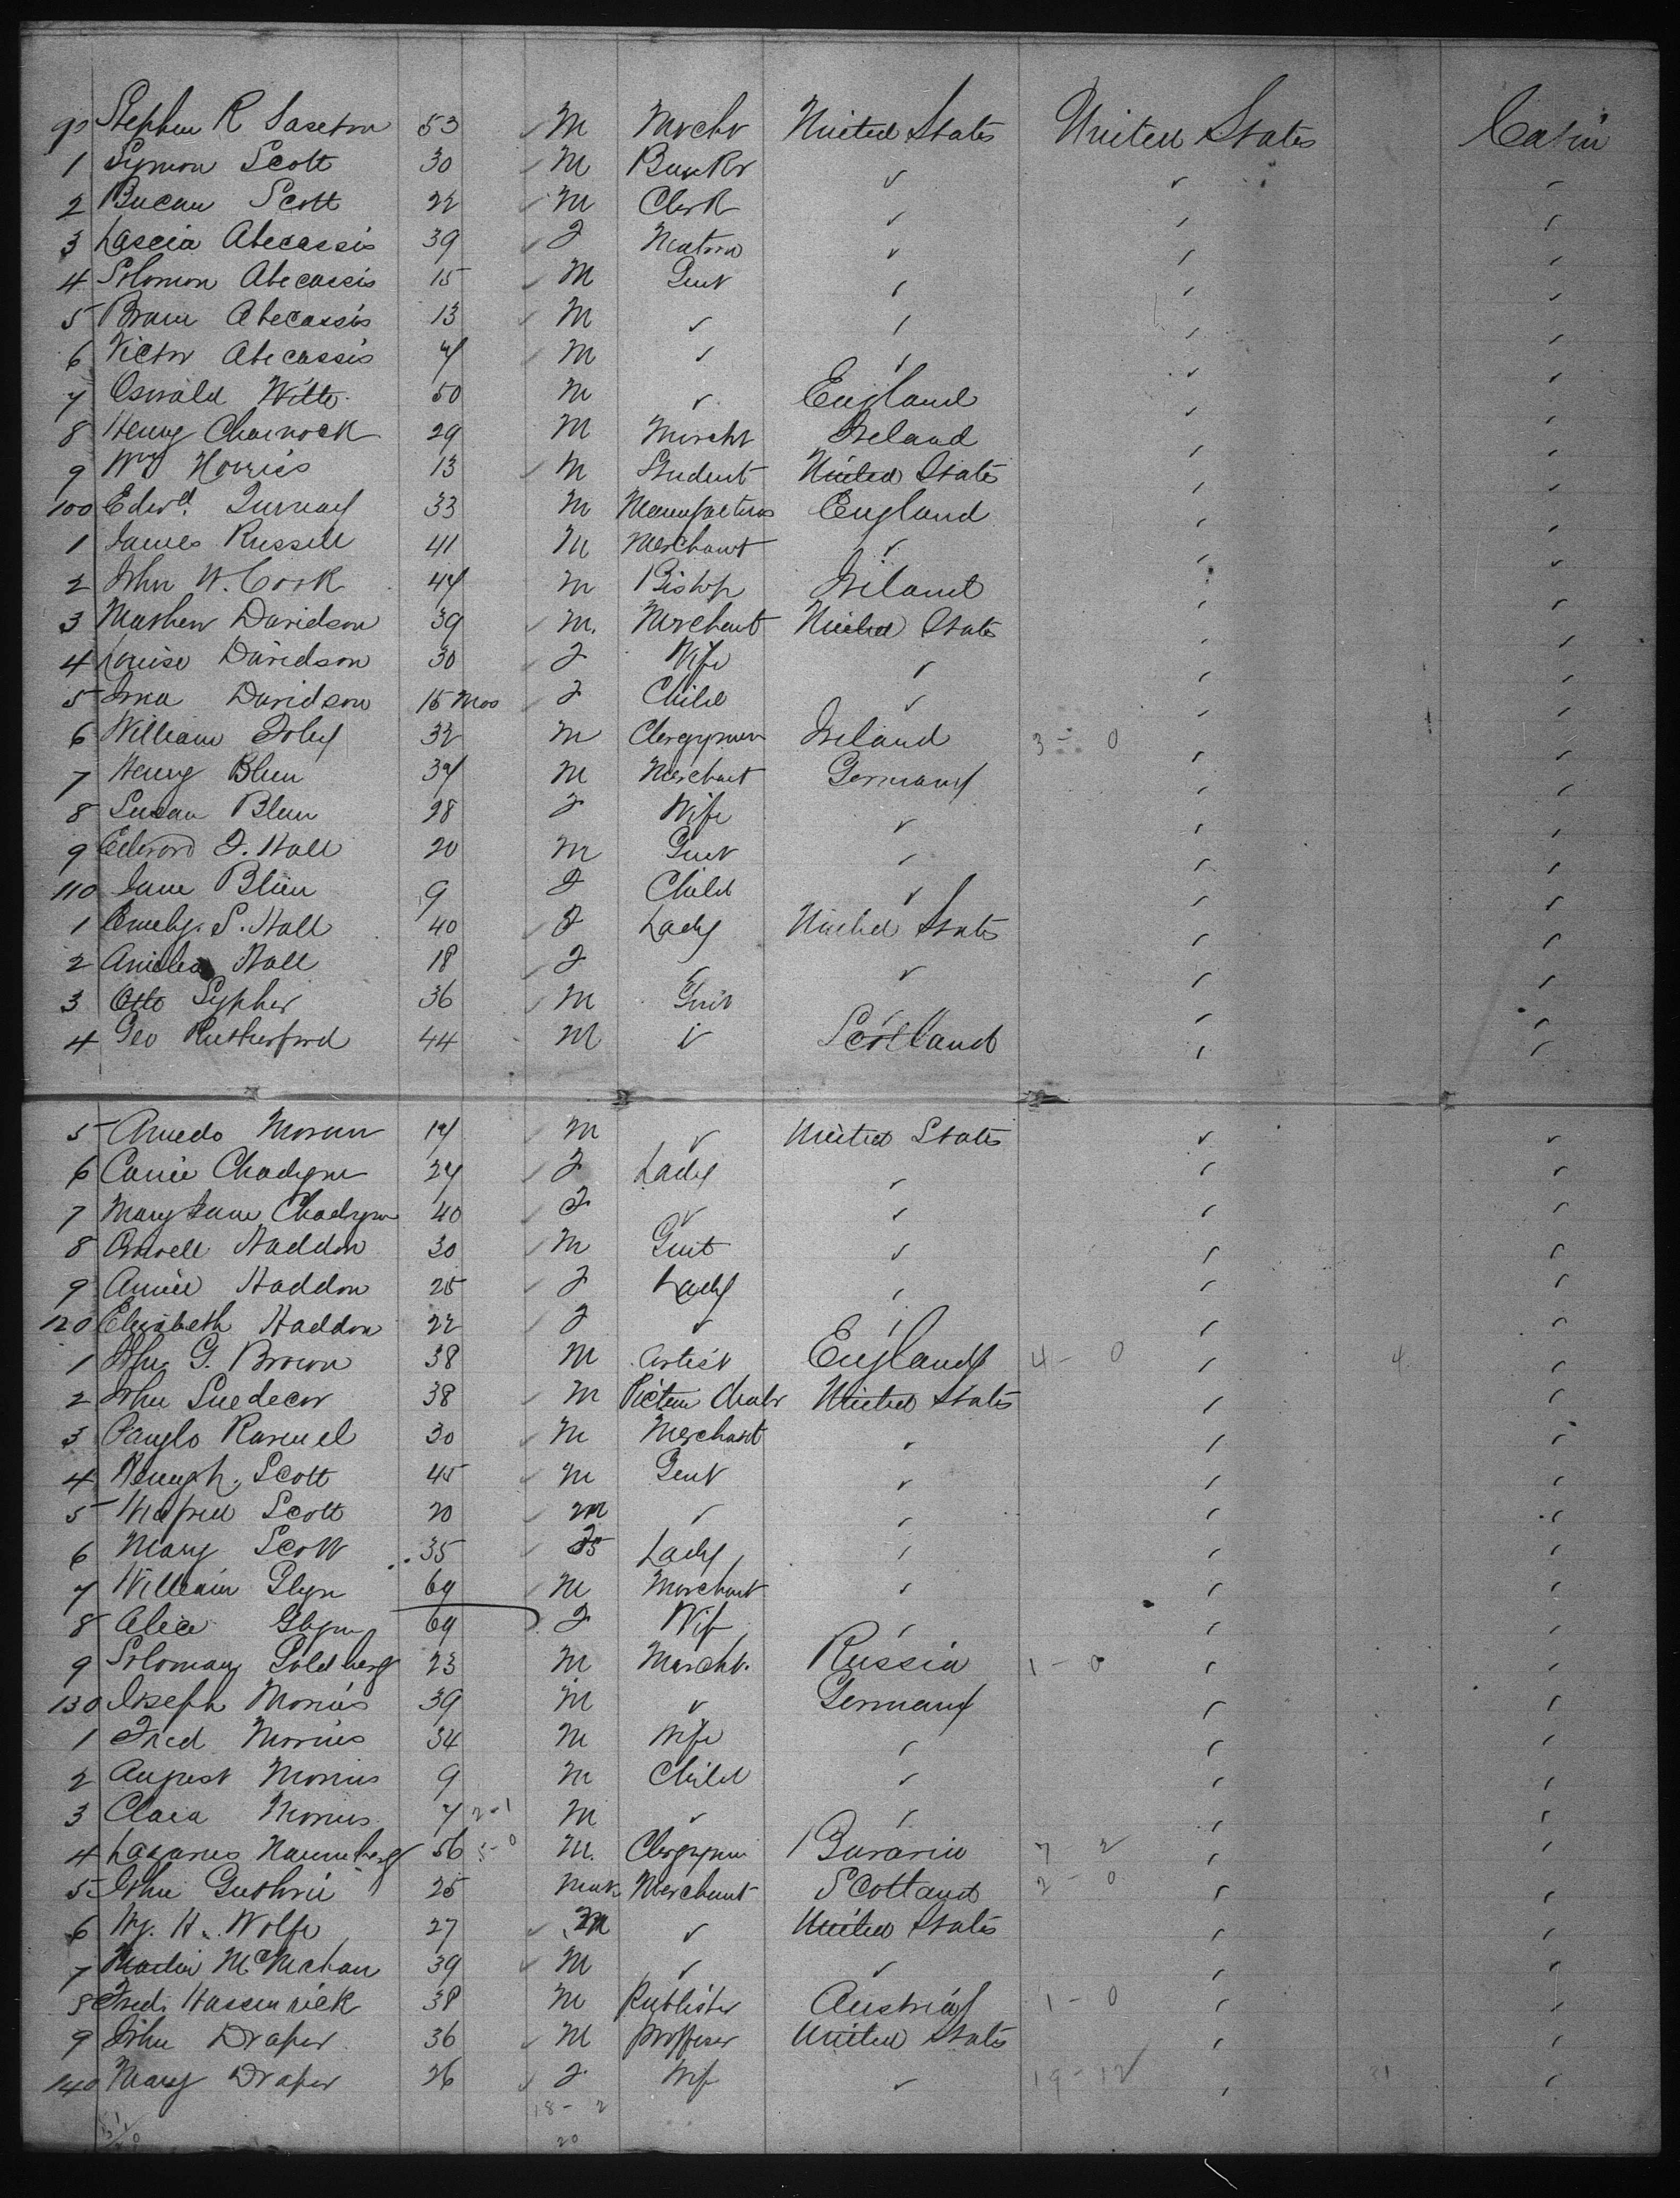 90 Stephen R Saxton 53 ✓ M Mrcht United States United States Cabin
1 Symon Scott 30 ✓ M Banker ✓ ✓ ✓
2 Scott 22 ✓ M Clerk ✓ ✓ ✓
3 Abecassis 39 ✓ F Matron ✓ ✓ ✓
4 Solomon Abecassis 15 ✓ M Gent ✓ ✓ ✓
5 Abecassis 13 ✓ M ✓ ✓ ✓ ✓
6 Victor Abecassis 7 ✓ M ✓ ✓ ✓ ✓
7 Oswald Witte 50 M ✓ England ✓ ✓
8 Henry Charnock 29 M Mercht Ireland ✓ ✓
9 Wm Norris 13 ✓ M Student United States ✓ ✓
100 Edwd. Gurnay 33 M Manufacturer England ✓ ✓
1 James Russell 41 M Merchant ✓ ✓ ✓
2 John W. Cook 47 M Bishop Ireland ✓ ✓
3 Mathew Davidson 39 ✓ M. Merchant United States ✓ ✓
4 Louise Davidson 30 ✓ F Wife ✓ ✓ ✓
5 Irma Davidson 15 Mos ✓ F Child ✓ ✓ ✓
6 William Foley 32 M Clergyman Ireland 3 - 0 ✓ ✓
7 Henry Blun 37 M Merchant Germany ✓ ✓
8 Susan Blun 28 F Wife ✓ ✓ ✓
9 Edward F. Hall 20 M Gent ✓ ✓ ✓
110 Jane Blun 9 F Child ✓ ✓ ✓
1 Emely. S. Hall 40 ✓ F Lady United States ✓ ✓
2 Hall 18 ✓ F ✓ ✓ ✓ ✓
3 Otto Sypher 36 ✓ M Gent ✓ ✓ ✓
4 Geo Rutherford 44 M ✓ Scotland ✓ ✓
5 Moran 17 ✓ M ✓ United States ✓ ✓
6 Carrie Chadgne 27 ✓ F Lady ✓ ✓ ✓
7 Mary Jane Chadgne 40 ✓ F ✓ ✓ ✓ ✓
8 Haddon 30 ✓ M Gent ✓ ✓ ✓
9 Annie Haddon 25 ✓ F Lady ✓ ✓ ✓
120 Elizabeth Haddon 22 ✓ F ✓ ✓ ✓ ✓
1 John G. Brown 38 M Artist England 4 - 0 ✓ 4 ✓
2 John Snedecor 38 ✓ M Picture dealr United States ✓ ✓
3 Ravenel 30 ✓ M Merchant ✓ ✓ ✓
4 Scott 45 ✓ M Gent ✓ ✓ ✓
5 Scott 20 ✓ M ✓ ✓ ✓ ✓
6 Mary Scott 35 ✓ F Lady ✓ ✓ ✓
7 William Glyn 69 ✓ M Merchant ✓ ✓ ✓
8 Alice Glyn 69 F Wife ✓ ✓ ✓
9 Solomay Goldberg 23 M Mercht. Russia 1 - 0 ✓ ✓
130 Joseph Morris 39 M ✓ Germany ✓ ✓
1 Fred Morris 34 M Wife ✓ ✓ ✓
2 August Morris 9 M Child ✓ ✓ ✓
3 Clara Morris 7 2-1 M ✓ ✓ ✓ ✓
4 Lazarus Naumberg 56 5-0 M. Clergyman Bavaria 7 2 ✓ ✓
5 John Guthrie 25 Merchant Scotland 2 - 0 ✓ ✓
6 Wy. H. Wolfe 27 ✓ M ✓ United States ✓ ✓
7 Martin McMahan 39 ✓ M ✓ ✓ ✓ ✓
8 Fred. Hassenrick 38 M Publister Austria 1 - 0 ✓ ✓
9 John Draper 36 ✓ M proffeser United States ✓ ✓
140 Mary Draper 26 ✓ F Wife ✓ 19 - 12 ✓ 31 ✓
18 - 2
20